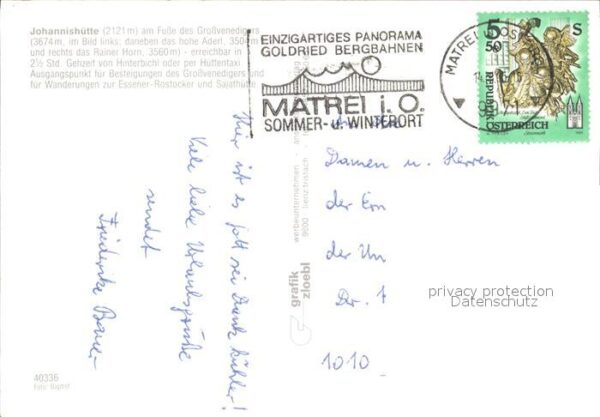 Johannishütte (2121 m) am Fuße des Großvenedigers
(3674 m, im Bild links; daneben das hohe Aderl, 3504 m
und rechts das Rainer Horn, 3560 m) - erreichbar in
2½ Std. Gehzeit von Hinterbichl oder per Hüttentaxi
Ausgangspunkt für Besteigungen des Großvenedigers und
für Wanderungen zur Essener-Rostocker und Sajathütte
EINZIGARTIGES PANORAMA
GOLDRIED BERGBAHNEN
MATREI i.O.
SOMMER- u. WINTERORT
MATREI
5 50
S
REPUBLIK
ÖSTERREICH
Hier ist es Gott sei Dank kühler!
Viele liebe Urlaubsgrüße
sendet
Friederike Bauer
werbeunternehmen
9900 lienz/tristach
grafik
zloebl
An die
Damen u. Herren
der
der
1010
privacy protection
Datenschutz
40336